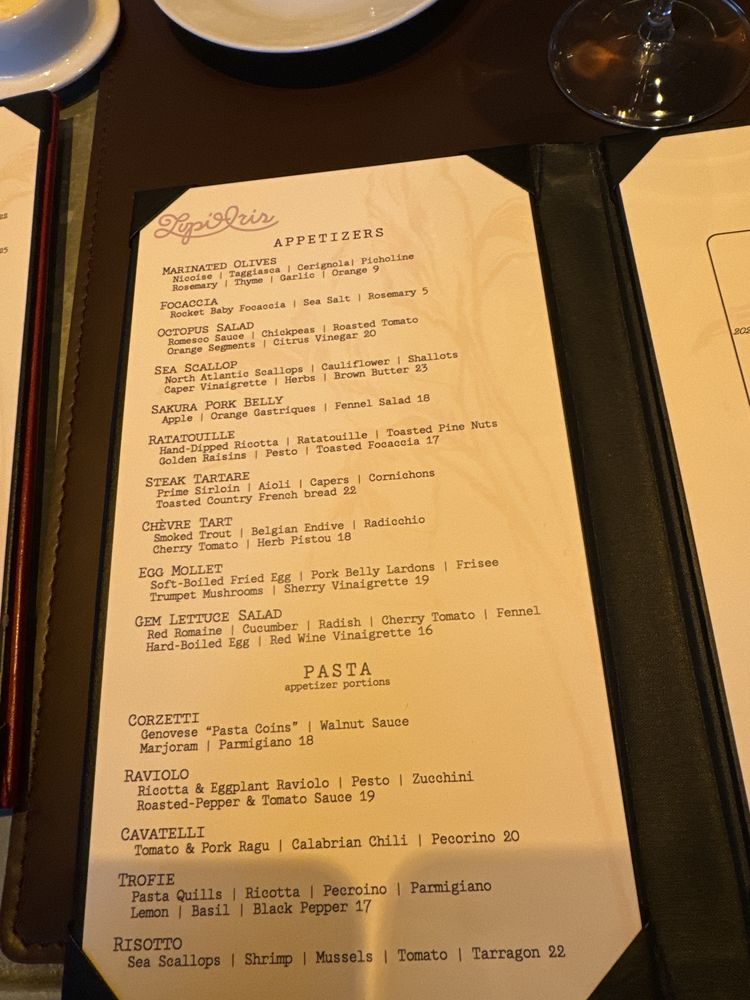 Lupi & Iris
APPETIZERS
MARINATED OLIVES
Nicoise | Taggiasca | Cerignola| Picholine
Rosemary | Thyme | Garlic | Orange 9
FOCACCIA
Rocket Baby Focaccia | Sea Salt | Rosemary 5
OCTOPUS SALAD
Romesco Sauce | Chickpeas | Roasted Tomato
Orange Segments | Citrus Vinegar 20
SEA SCALLOP
North Atlantic Scallops | Cauliflower | Shallots
Caper Vinaigrette | Herbs | Brown Butter 23
SAKURA PORK BELLY
Apple | Orange Gastriques | Fennel Salad 18
RATATOUILLE
Hand-Dipped Ricotta | Ratatouille | Toasted Pine Nuts
Golden Raisins | Pesto | Toasted Focaccia 17
STEAK TARTARE
Prime Sirloin | Aioli | Capers | Cornichons
Toasted Country French bread 22
CHÈVRE TART
Smoked Trout | Belgian Endive | Radicchio
Cherry Tomato | Herb Pistou 18
EGG MOLLET
Soft-Boiled Fried Egg | Pork Belly Lardons | Frisee
Trumpet Mushrooms | Sherry Vinaigrette 19
GEM LETTUCE SALAD
Red Romaine | Cucumber | Radish | Cherry Tomato | Fennel
Hard-Boiled Egg | Red Wine Vinaigrette 16
PASTA
appetizer portions
CORZETTI
Genovese "Pasta Coins" | Walnut Sauce
Marjoram | Parmigiano 18
RAVIOLO
Ricotta & Eggplant Raviolo | Pesto | Zucchini
Roasted-Pepper & Tomato Sauce 19
CAVATELLI
Tomato & Pork Ragu | Calabrian Chili | Pecorino 20
TROFIE
Pasta Quills | Ricotta | Pecroino | Parmigiano
Lemon | Basil | Black Pepper 17
RISOTTO
Sea Scallops | Shrimp | Mussels | Tomato | Tarragon 22